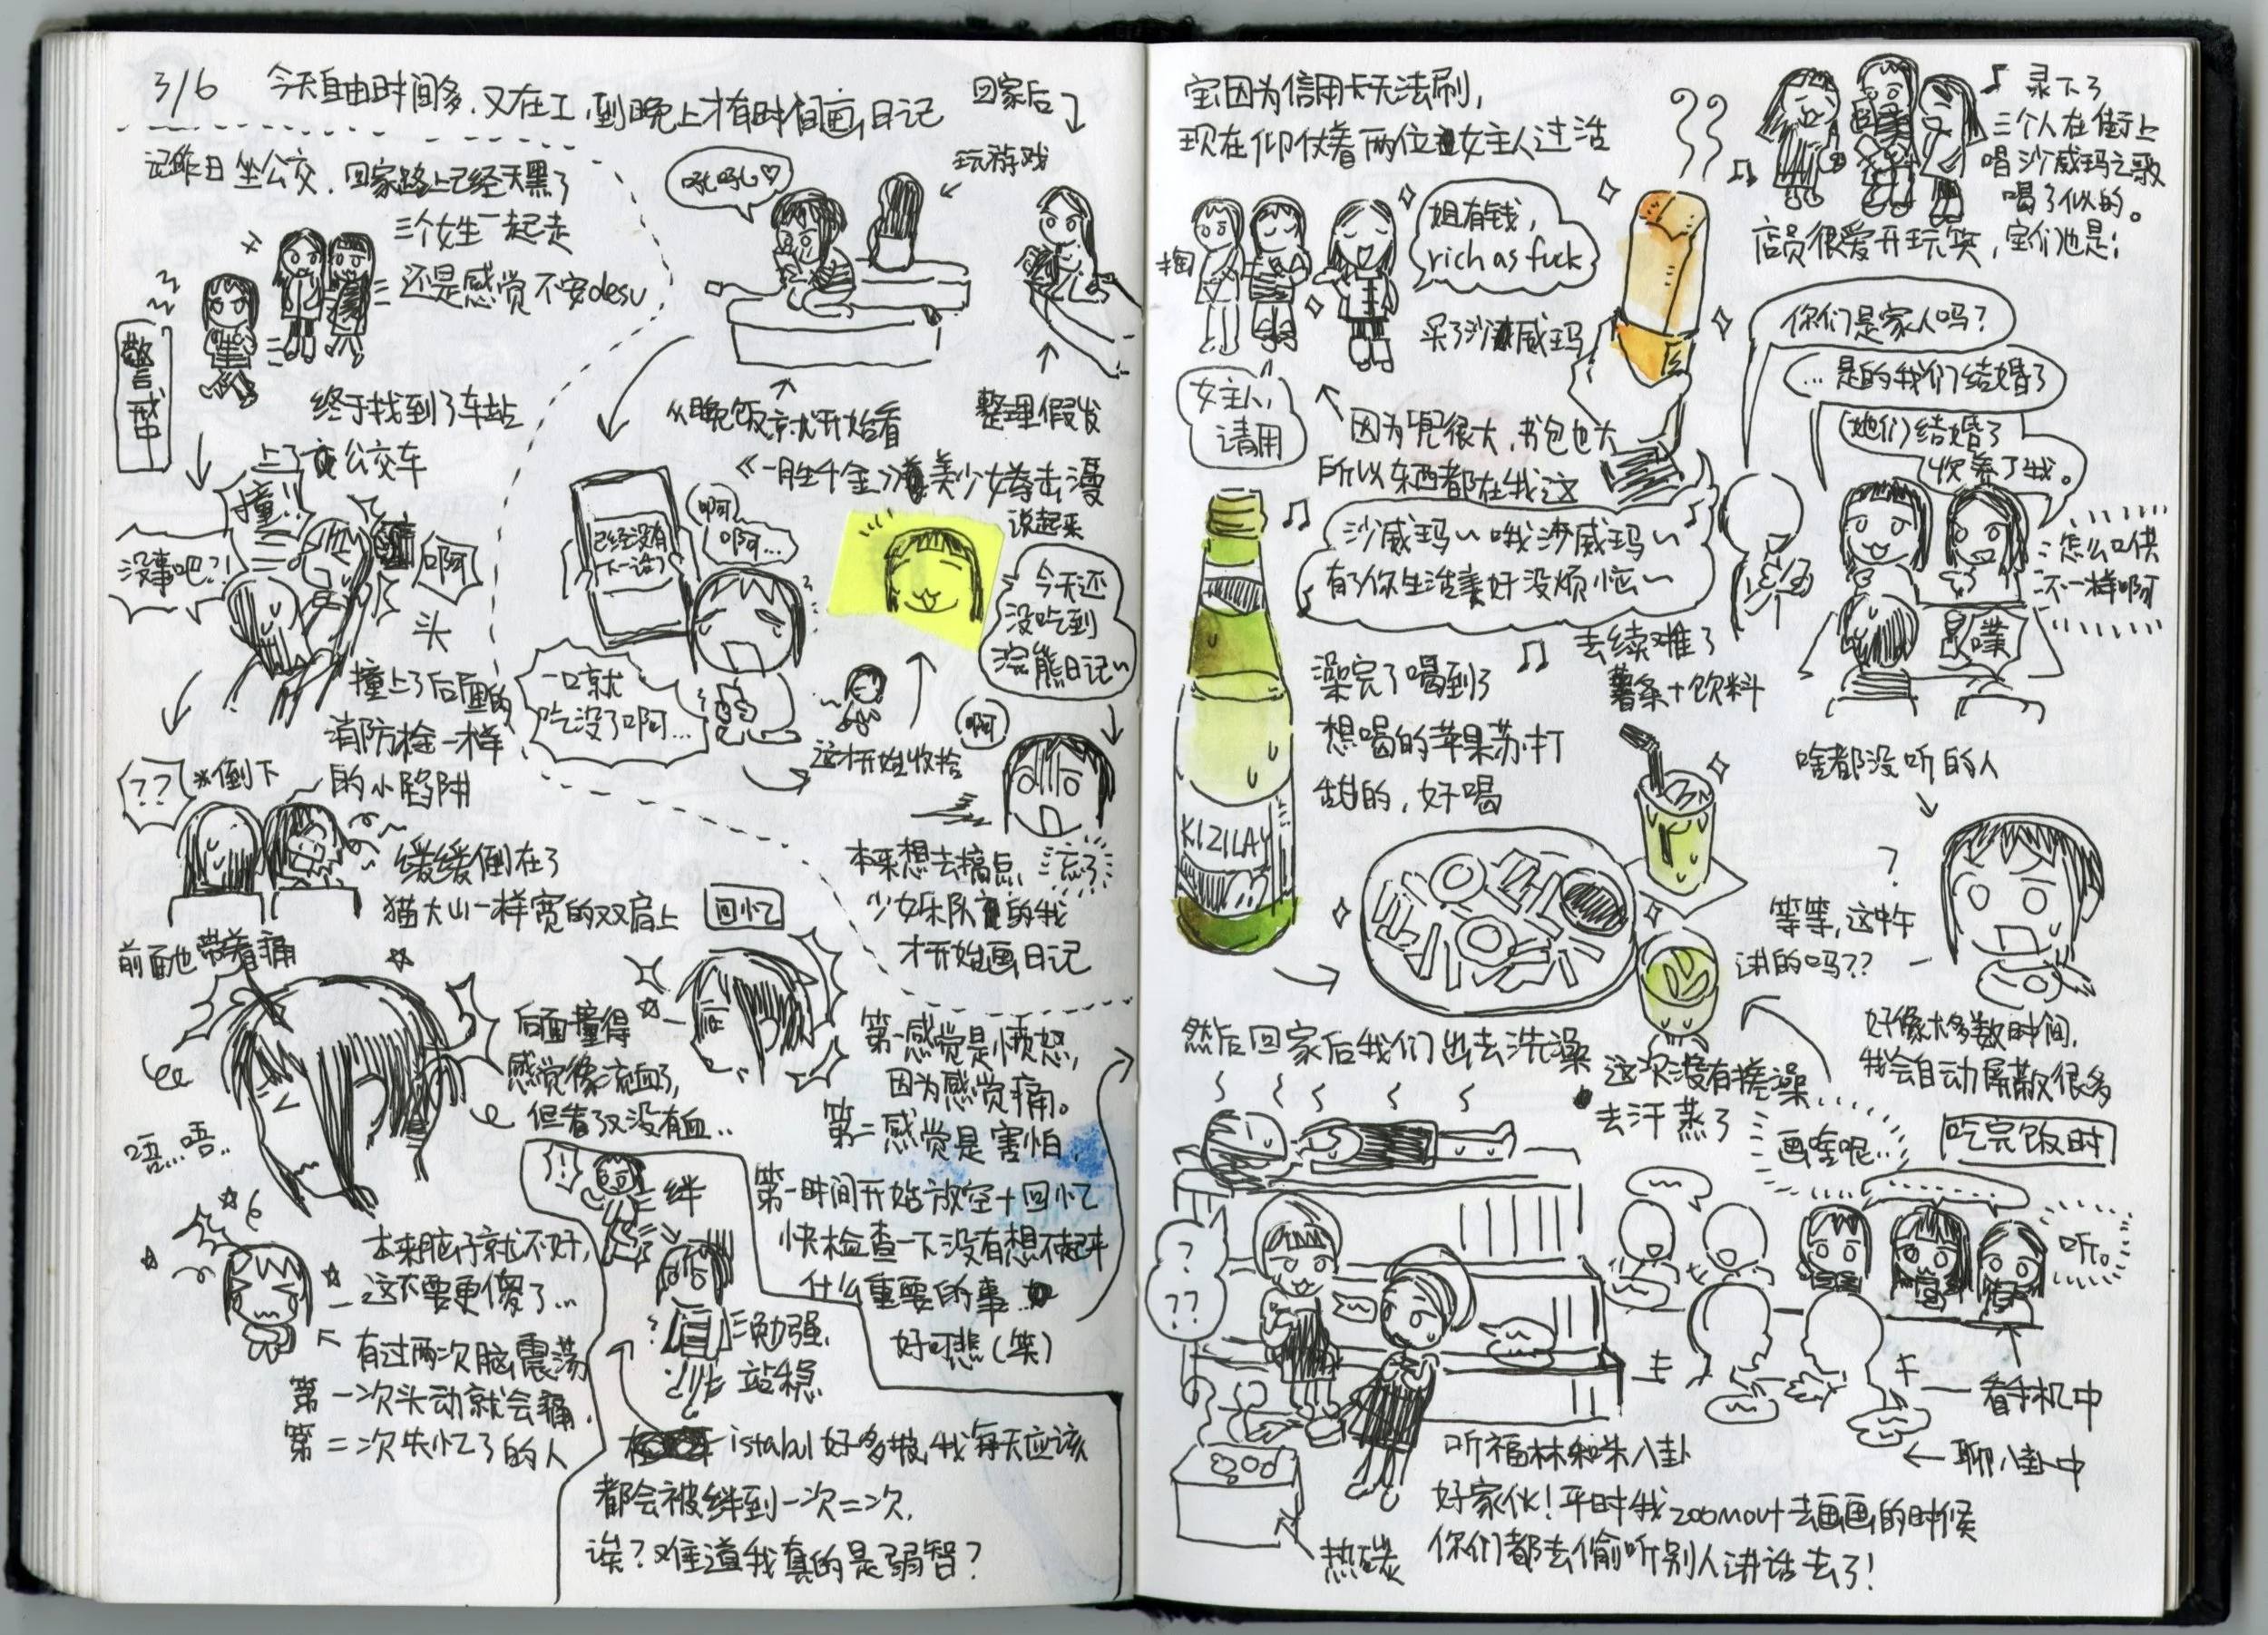 3/6 今天自由时间多,又在工,到晚上才有时间画日记
记昨日坐公交,回家路上已经天黑了
三个女生一起走
还是感觉不安desu
警戒中
终于找到了车站
上了公交车
撞!!
没事吧?!
啊
头
撞上了后面的
消防栓一样
的小陷阱
??
*倒下
缓缓倒在了
猫大山一样宽的双肩上
前面也带着痛
唔..唔..
后面撞得
感觉像流血了,
但看了又没有血..
回忆
第一感觉是愤怒,
因为感觉痛。
第二感觉是害怕,
第一时间开始放空+回忆
快检查一下没有想不起来
什么重要的事...
好可悲(笑)
本来脑仔就不好,
这不要更傻了...
有过两次脑震荡
第一次头动就会痛,
第二次失忆了的人
!
绊
勉强
站稳
istabul好多坡,我每天应该
都会被绊到一次二次,
诶?难道我真的是弱智?
回家后
玩游戏
吼吼♡
从晚饭就开始看
《一胜千金》美少女拳击漫
整理假发
已经没有
下一话了
啊
啊...
一口就
吃没了啊...
这才开始收拾
说起来
今天还
没吃到
浣熊日记~
啊
忘了
本来想去搞点
少女乐队的我
才开始画日记
宝因为信用卡无法刷,
现在仰仗着两位女主人过活
掏
女主人,
请用
姐有钱,
rich as fuck
买了沙威玛
因为兜很大,书包也大
所以东西都在我这
♪ 录下了
三个人在街上
唱沙威玛之歌
喝了似的。
店员很爱开玩笑,宝们也是:
你们是家人吗?
...是的我们结婚了
(她们)结婚了
收养了我。
怎么口供
不一样啊
噗
沙威玛~哦沙威玛~
有了你生活美好没烦恼~
KIZILAY
澡完了喝到了
想喝的苹果苏打
甜的,好喝
去续摊了
薯条+饮料
啥都没听的人
?
等等,这中午
讲的吗??
好像大多数时间,
我会自动屏蔽很多
然后回家后我们出去洗澡
这次没有搓澡
去汗蒸了
?
??
听福林和朱八卦
热碳
吃完饭时
画啥呢..
听。
看手机中
聊八卦中
好家伙!平时我zoomout去画画的时候
你们都去偷听别人讲话去了!